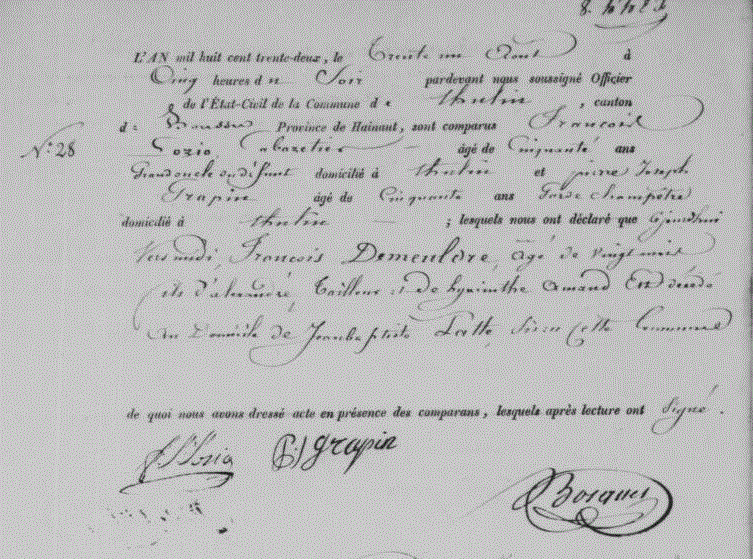 L'AN mil huit cent trente-deux, le Trente un Aout à
Cinq heures du Soir pardevant nous soussigné Officier
de l'État-Civil de la Commune de thulin, canton
de Boussu Province de Hainaut, sont comparus François
N.° 28
Cabaretier âgé de Cinquante ans
Grandoncle du défunt domicilié à thulin et pierre Joseph
Grapin âgé de Cinquante ans Garde champêtre
domicilié à thulin ; lesquels nous ont déclaré que
Vers midi, François Demeuldre, âgé de vingt mois
fils d'alexandre, Tailleur et de hyacinthe amand Est décédé
au Domicile de Jeanbaptiste Latte Sis en Cette Commune
de quoi nous avons dressé acte en présence des comparans, lesquels après lecture ont Signé.
grapin